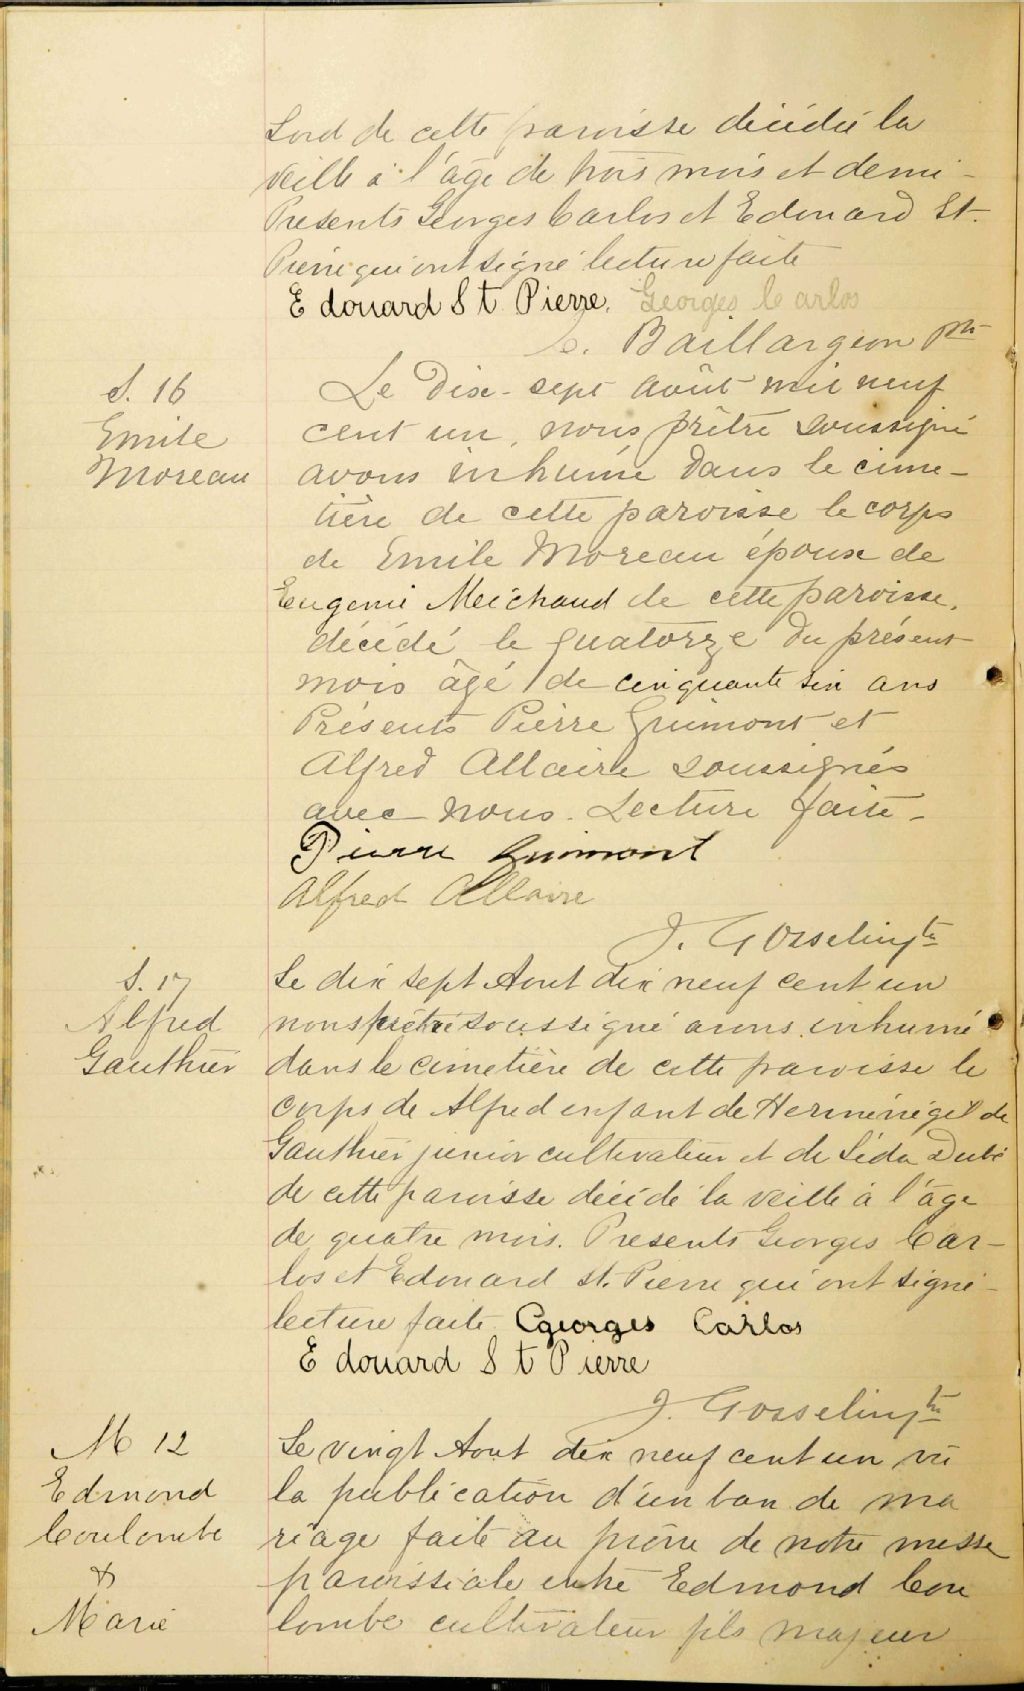 Lord de cette paroisse décédé la
veille à l'âge de trois mois et demi -
Presents Georges Carlos et Edouard St.
Pierre qui ont signé lecture faite
Edouard St Pierre. Georges Carlos
C. Baillargeon ptre
S. 16
Emile
Moreau
Le Dix-sept août mil neuf
cent un, nous prêtre soussigné
avons inhumé dans le cime-
tière de cette paroisse le corps
de Emile Moreau époux de
Eugenie Meichaud de cette paroisse,
décédé le quatorze du présent
mois âgé de cinquante six ans
Présents Pierre Guimont et
Alfred Allaire soussignés
avec nous. Lecture faite -
Pierre Guimont
Alfred Allaire
J. Gosselin ptre
S. 17
Alfred
Gauthier
Le dix sept Aout dix neuf cent un
nous prêtre soussigné avons inhumé
dans le cimetière de cette paroisse le
corps de Alfred enfant de Herménégilde
Gauthier junior cultivateur et de Léda Dubé
de cette paroisse décédé la veille à l'âge
de quatre mois. Presents Georges Car-
los et Edouard St. Pierre qui ont signé -
lecture faite Georges Carlos
Edouard St Pierre
J. Gosselin ptre
M 12
Edmond
Coulombe
&
Marie
Le vingt Aout dix neuf cent un vu
la publication d'un ban de ma
riage faite au prône de notre messe
paroissiale entre Edmond Cou
lombe cultivateur fils majeur